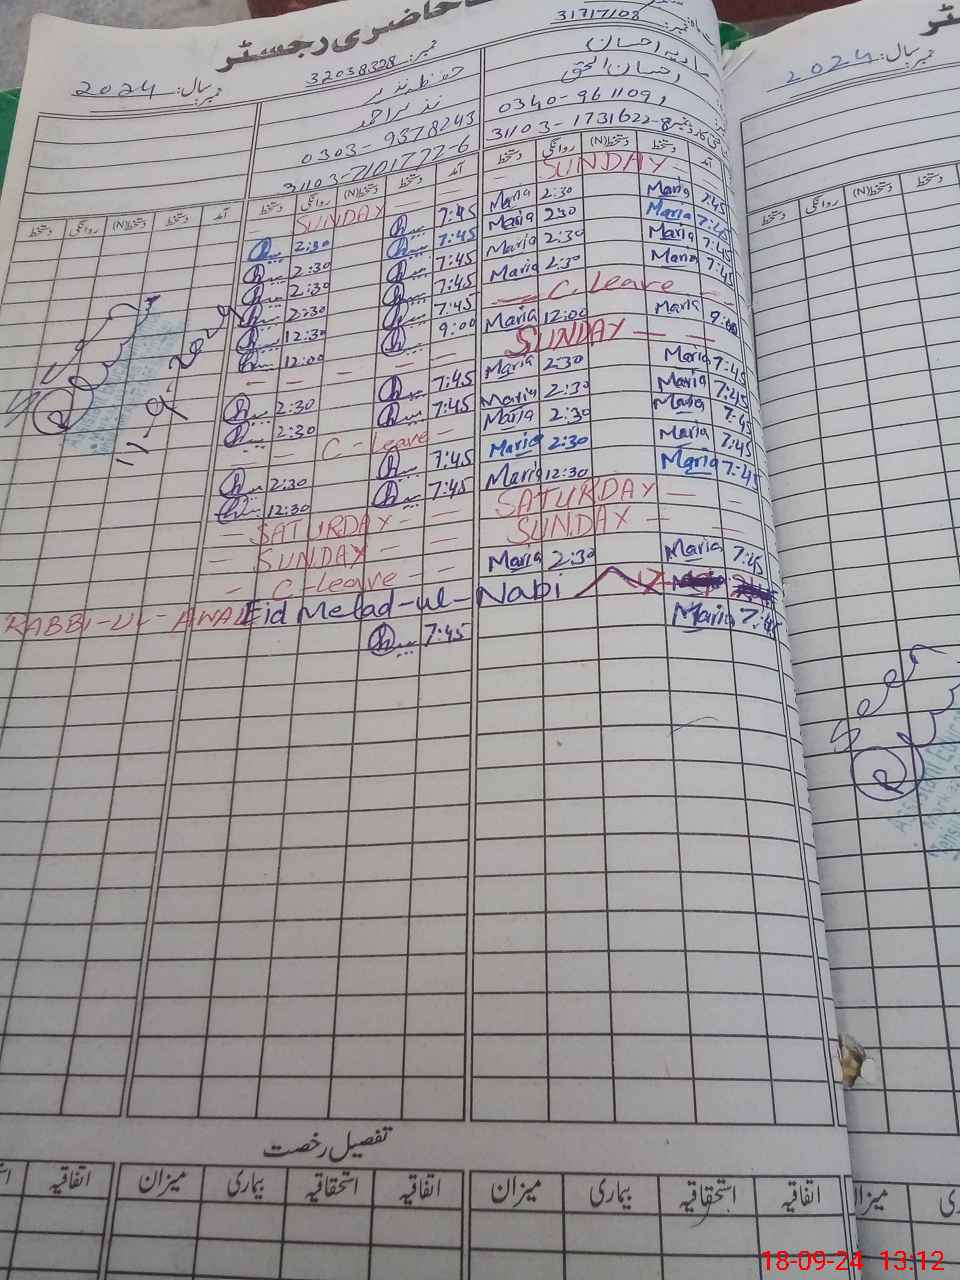 حاضری رجسٹر
31717/08
نمبر: 32038328
بسال: 2024
بسال: 2024
ماریہ احسان
احسان الحق
0340-9611091
31103-1731622-
نذیر احمد
0303-9378243
31103-7101777-6
آمد دستخط دستخط(N) روانگی دستخط
آمد دستخط دستخط(N) روانگی دستخط
آمد دستخط دستخط(N) روانگی دستخط
دستخط دستخط(N) روانگی دستخط
SUNDAY
SUNDAY
7:45 Maria 2:30 Maria
2:30 7:45
7:45 Maria 2:30 Maria
2:30 7:45
7:45 Maria 2:30 Maria
2:30 7:45
7:45 Maria 2:30 Maria
2:30 7:45
C. Leave
12:30 7:45
9:00 Maria 12:00 Maria
12:00 9:00
SUNDAY
7:45 Maria 2:30 Maria
2:30 7:45
7:45 Maria 2:30 Maria
2:30 7:45
7:45 Maria 2:30 Maria
C-Leave
7:45 Maria 2:30 Maria
2:30 7:45
7:45 Maria 12:30 Maria
12:30 7:45
SATURDAY
SATURDAY
SUNDAY
SUNDAY
7:45 Maria 2:30 Maria
C-Leave
RABBI-UL-AWAL Eid Melad-ul-Nabi
7:45 Maria
7:45
11-9-2024
تفصیل رخصت
اتفاقیہ استحقاقیہ بیماری میزان
اتفاقیہ استحقاقیہ بیماری میزان
اتفاقیہ
میزان
18-09-24 13:12